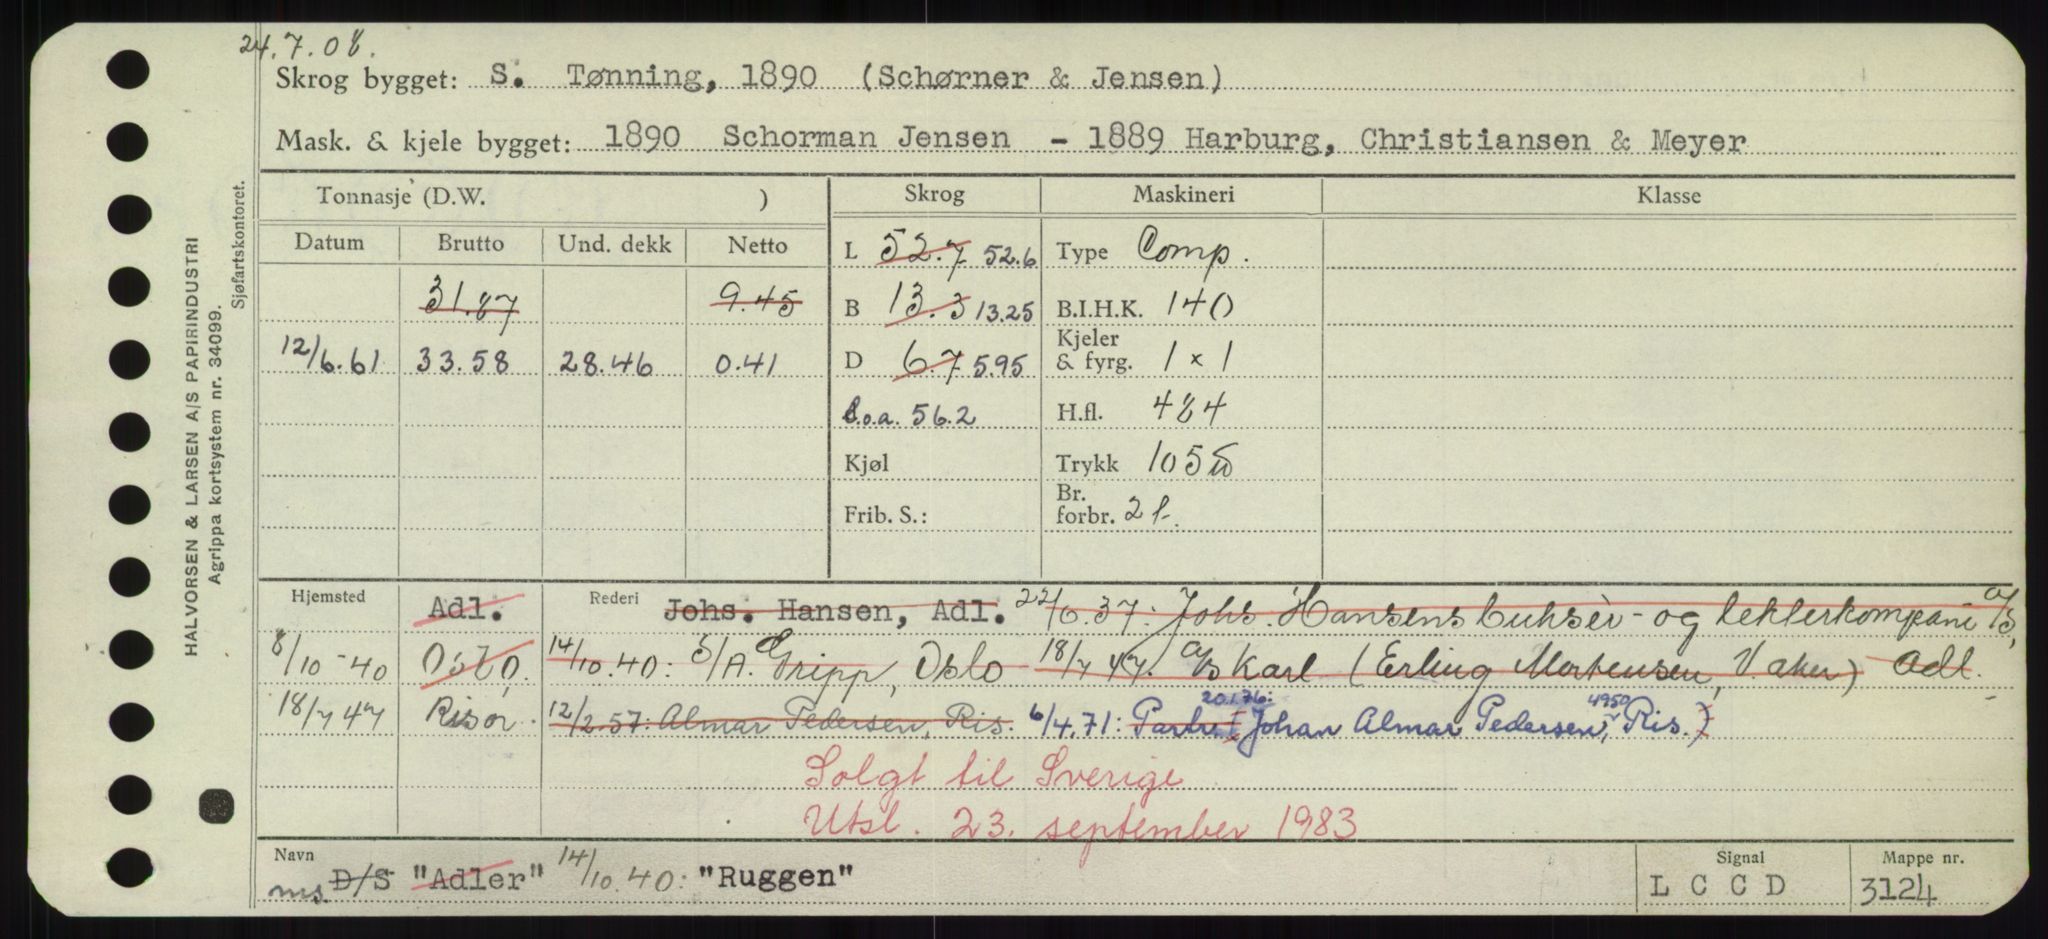 24.7.08.
Skrog bygget: S. Tønning, 1890 (Schørner & Jensen)
Mask. & kjele bygget: 1890 Schorman Jensen - 1889 Harburg, Christiansen & Meyer
Tonnasje (D.W. ) Skrog Maskineri Klasse
Datum Brutto Und. dekk Netto L 52.7 52.6 Type Comp.
31.87 9.45 B 13.3 13.25 B.I.H.K. 140
12/6.61 33.58 28.46 0.41 D 6.7 5.95 Kjeler & fyrg. 1 x 1
l.o.a. 56.2 H.fl. 484
Kjøl Trykk 105 lb
Frib. S.: Br. forbr. 2 t.
Hjemsted Adl. Rederi Johs. Hansen, Adl. 22/6.37: Johs. Hansens buksér- og lekterkompani A/S,
8/10-40 Oslo, 14/10.40: S/A. Gripp, Oslo 18/7 47. A/S Karl (Erling Mortensen, V. aker) Adl.
18/7 47 Risør. 12/2.57: Almar Pedersen, Ris. 6/4.71: Partr. 20.1.76: (Johan Almar Pedersen, 4950 Ris.)
Solgt til Sverige
Utsl. 23. september 1983
Navn Signal Mappe nr.
ms. D/S "Adler" 14/10.40: "Ruggen" L C C D 3124
HALVORSEN & LARSEN A/S PAPIRINDUSTRI
Agrippa kortsystem nr. 34099.
Sjøfartskontoret.